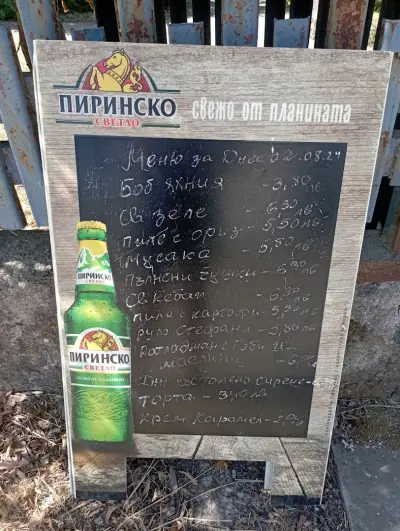 ПИРИНСКО
СВЕТЛО
свежо от планината
Меню за Днес 02.08.24
Боб яхния - 3,80лв
Св зеле - 6,30лв
пиле с ориз - 5,50лв
Мусака - 5,80лв
Пълнени чушки - 5,30лв
Св кебап - 6,30лв
пиле с картофи - 5,50лв
руло Стефани - 5,80лв
Патладжан с гъби и
маслини
сирене
торта -
Крем Карамел - 2,90
ПИРИНСКО
ПИРИНСКО
СВЕТЛО